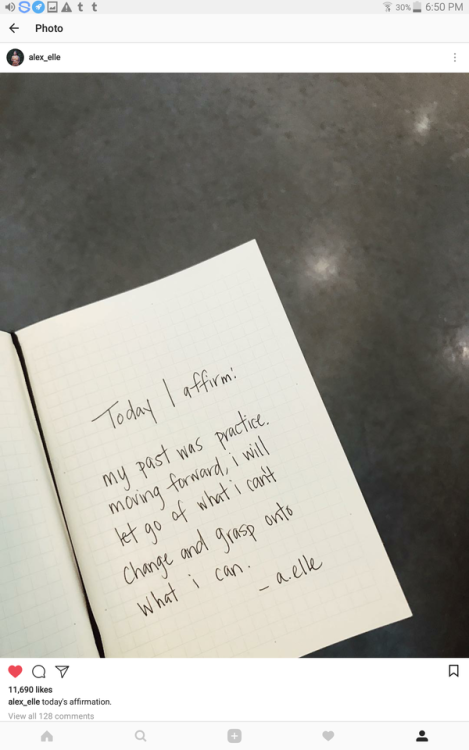 30% 6:50 PM
Photo
alex_elle
Today I affirm:
my past was practice.
moving forward, i will
let go of what i can't
change and grasp onto
what i can.
- a.elle
11,690 likes
alex_elle today's affirmation.
View all 128 comments